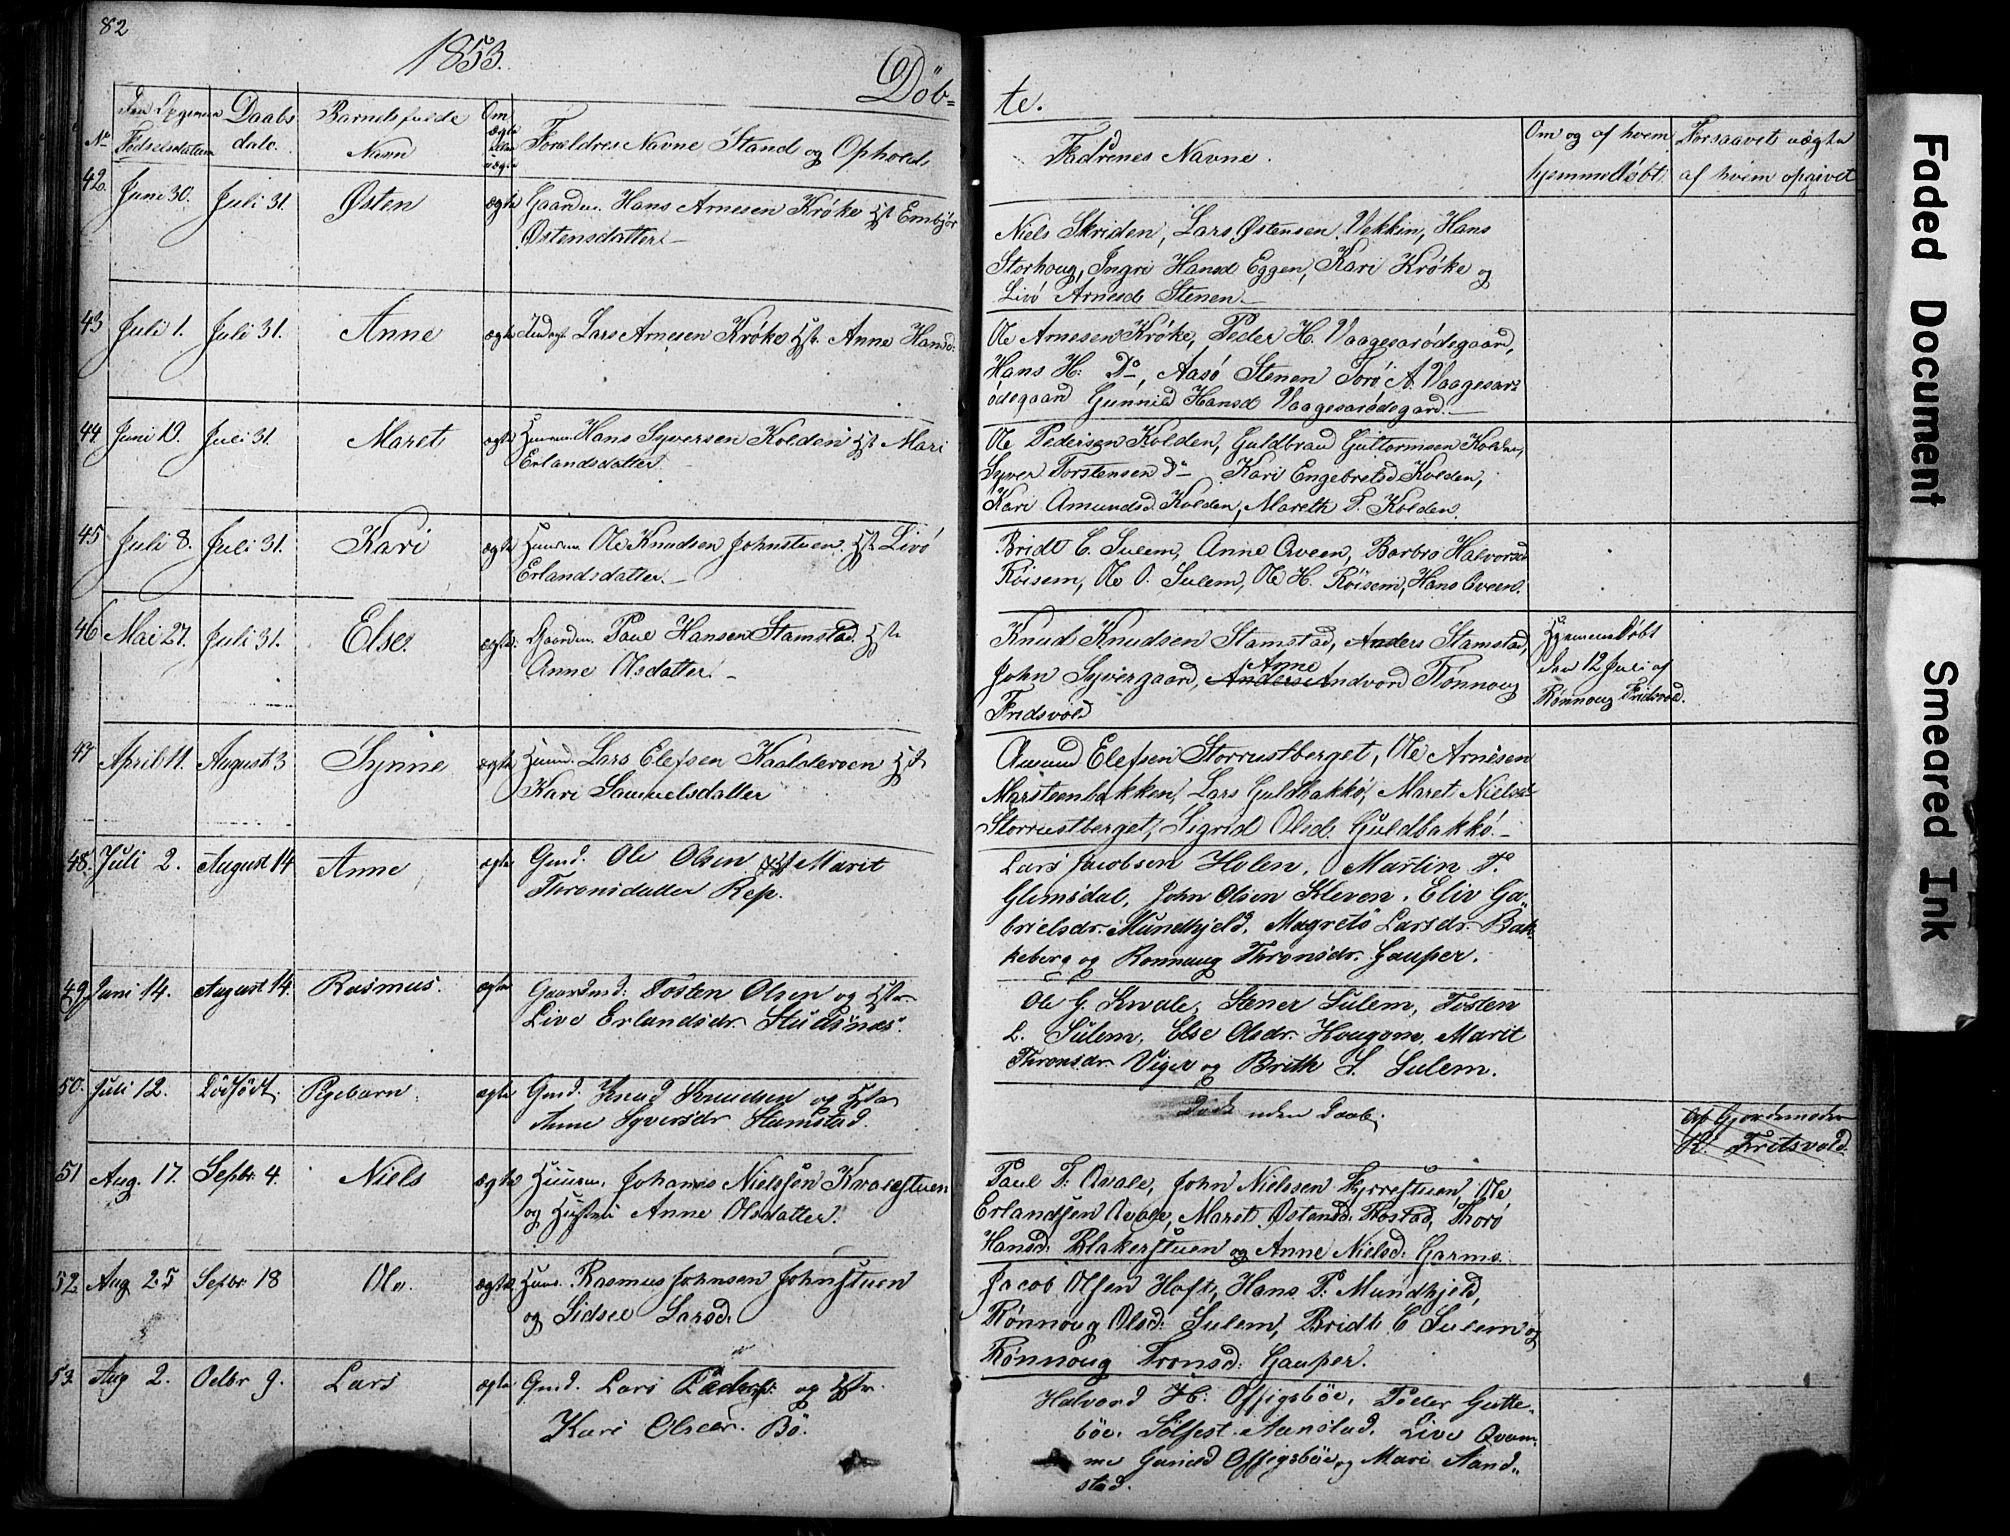 82
1853.
Döb-
te.
No
Fødselsdatum
Daabs
dato.
Barnets fulde
Navn
Om
ægte
eller
uægte
Forældres Navne Stand og Ophold
Fadrenes Navne.
Om og af hvem
hjemmedøbt
af hvem opgivet
42. Juni 30. Juli 31. Østen ægte Gaardm. Hans Arnesen Krøke Hst Embjør
Østensdatter
Niels Skriden, Lars Østensen Vekkin, Hans
Storhoug, Ingri Hansd Eggen, Kari Krøke og
Livø Arnesd Stenen
43 Juli 1. Juli 31. Anne ægte Lars Arnesen Krøke Hst. Anne Hansd:
Ole Arnesen Krøke, Peder H. Vaagesarødegaard,
Hans H: Do, Aasø Stenen Torø A. Vaagesar-
ødegaard Gunnild Hansd Vaagesarødegard.
44 Juni 19. Juli 31. Maret ægte Huusm. Hans Syversen Kolden Hst Mari
Erlandsdatter
Ole Pedersen Kolden, Guldbrand Guttormsen Kolden,
Syver Torstensen Do Kari Engebretsd Kolden,
Kari Amundsd. Kolden, Mareth P. Kolden.
45 Juli 8. Juli 31. Kari ægte Huusm. Ole Knudsen Johnstuen Hst Livø
Erlandsdatter.
Bridt E. Sulem, Anne Qveen, Barbro Halvorsd
Røisem, Ole O. Sulem, Ole H. Røisem, Hans Qveen.
46 Mai 27. Juli 31. Else. ægte. Gaardm. Paul Hansen Stamstad Hst
Anne Olsdatter.
Knud Knudsen Stamstad, Anders Stamstad,
Anne
John Syvergaard, Anders Andvord Rønnoug
Fridsvold
Hjemmedøbt
den 12 Juli af
Rønnoug Fridsvold.
47 April 11. August 3 Synne ægte Huusm. Lars Elefsen Kaldleroen Hst
Kari Samuelsdatter
Amund Elefsen Storrustberget, Ole Arnesen
Marsteenbakken, Lars Guldbakkø, Maret Nielsd
Storrustberget, Sigrid Olsd Guldbakkø.
48. Juli 2. August 14 Anne ægte Gmd. Ole Olsen Hst Marit
Thronsdatter Rep.
Lars Jacobsen Holen, Martin P.
Glimsdal, John Olsen Kleven. Eliv Ga-
brielsdr. Mundhjeld, Magrete Larsdr. Bak-
keberg og Ronnaug Thronsdr. Gauper.
49. Juni 14. August 14. Rasmus. ægte Gaardmd. Tosten Olsen og Hstr.
Live Erlandsdr. Studsnes.
Ole G. Kvale, Stener Sulem, Tosten
L. Sulem, Else Olsdr. Hougom, Marit
Thronsdr. Viger og Brith S. Sulem.
50. Juli 12. Dödfödt. Pigebarn. ægte Gmd. Knud Knudsen og Hstr
Anne Syversdr. Stamstad.
Död uden Daab.
Af Gjordemoder
R. Fritsvold
51 Aug. 17. Sepbr. 4. Niels ægte Huusm. Johanes Nielssen Kvalestuen
og Hustru Anne Olsdatter.
Paul T: Qvale, John Nielssen Kjerrestuen, Ole
Erlandsen Qvale, Maret Østensd: Rostad, Thorø
Hansd: Blakerstuen og Anne Nielsd: Garmo.
52. Aug 25 Sepbr 18 Ole. ægte Huus. Rasmus Johnsen Johnstuen
og Sidsel Larsd.
Jacob Olsen Hoft, Hans P. Mundhjeld,
Rønnoug Olsd: Sulem, Bridt E Sulem og
Rønnoug Tronsd: Gauper.
53. Aug 2. Octbr 9. Lars ægte Gmd. Lars Pedersen og Hstr.
Kari Olsdr. Bö.
Halvord H: Offigsböe, Peder Gutte-
böe. Sølfest Aanstad. Live Qvam-
me Gunild Offigsböe og Mari Aand-
stad.
Faded Document
Smeared Ink